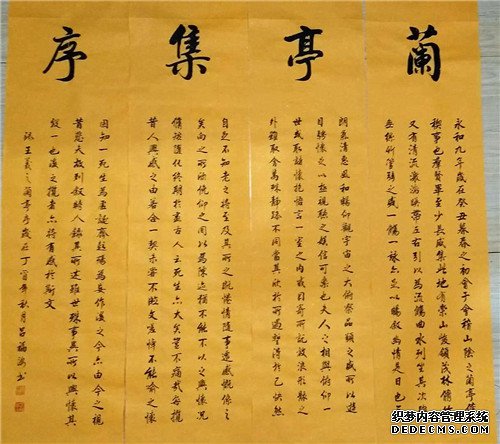 蘭亭集序
永和九年歲在癸丑暮春之初會于會稽山陰之蘭亭脩
禊事也羣賢畢至少長咸集此地有崇山峻領茂林脩竹
又有清流激湍暎帶左右引以為流觴曲水列坐其次
無絲竹管弦之盛一觴一詠亦足以暢叙幽情是日也天
朗氣清惠風和暢仰觀宇宙之大俯察品類之盛所以遊
目騁懷足以極視聽之娛信可樂也夫人之相與俯仰一
世或取諸懷抱悟言一室之內或因寄所託放浪形骸之
外雖取舍萬殊靜躁不同當其欣於所遇蹔得於己快然
自足不知老之將至及其所之既惓情隨事遷感慨係之
矣向之所欣俛仰之間以為陳迹猶不能不以之興懷況
脩短隨化終期於盡古人云死生亦大矣豈不痛哉每攬
昔人興感之由若合一契未嘗不臨文嗟悼不能喻之懷
固知一死生為虛誕齊彭殤為妄作後之今亦由今之視
昔悲夫故列叙時人錄其所述雖世殊事異所以興懷其
致一也後之攬者亦將有感於斯文
王羲之蘭亭序歲在丁酉年秋月吕福海書
织梦内容管理系统
DEDECMS.COM